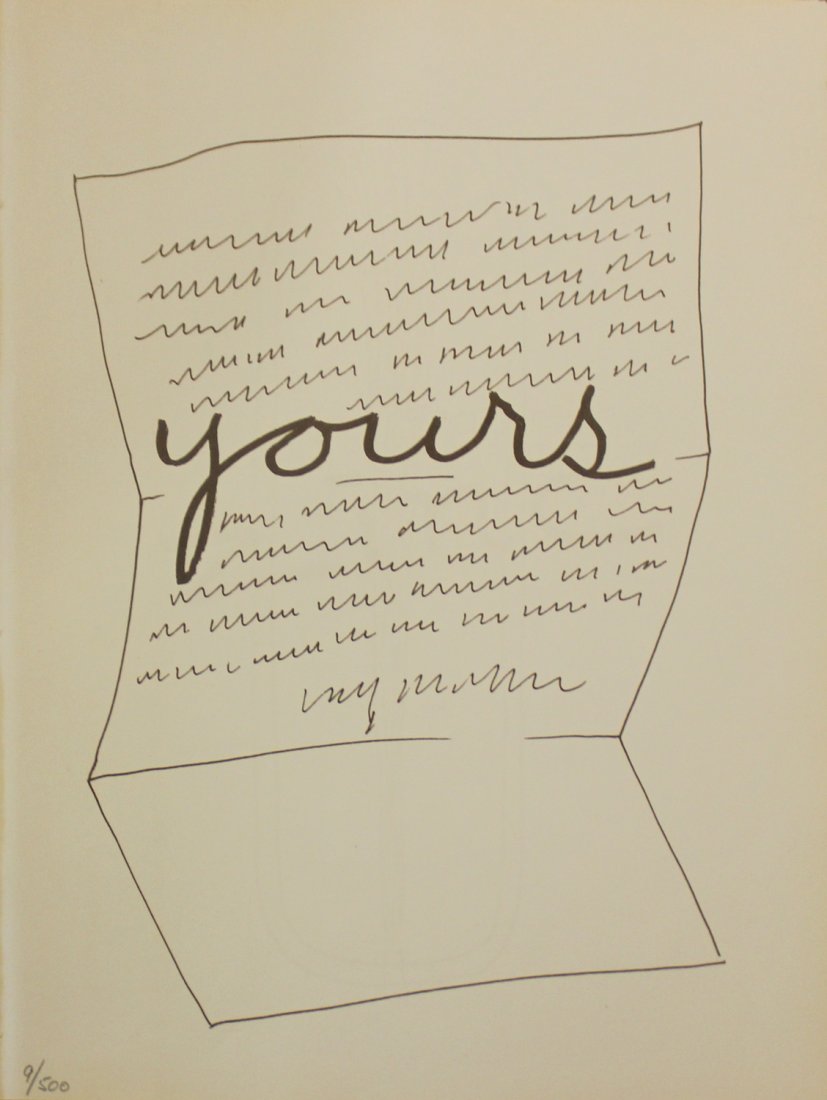 yours
9/500